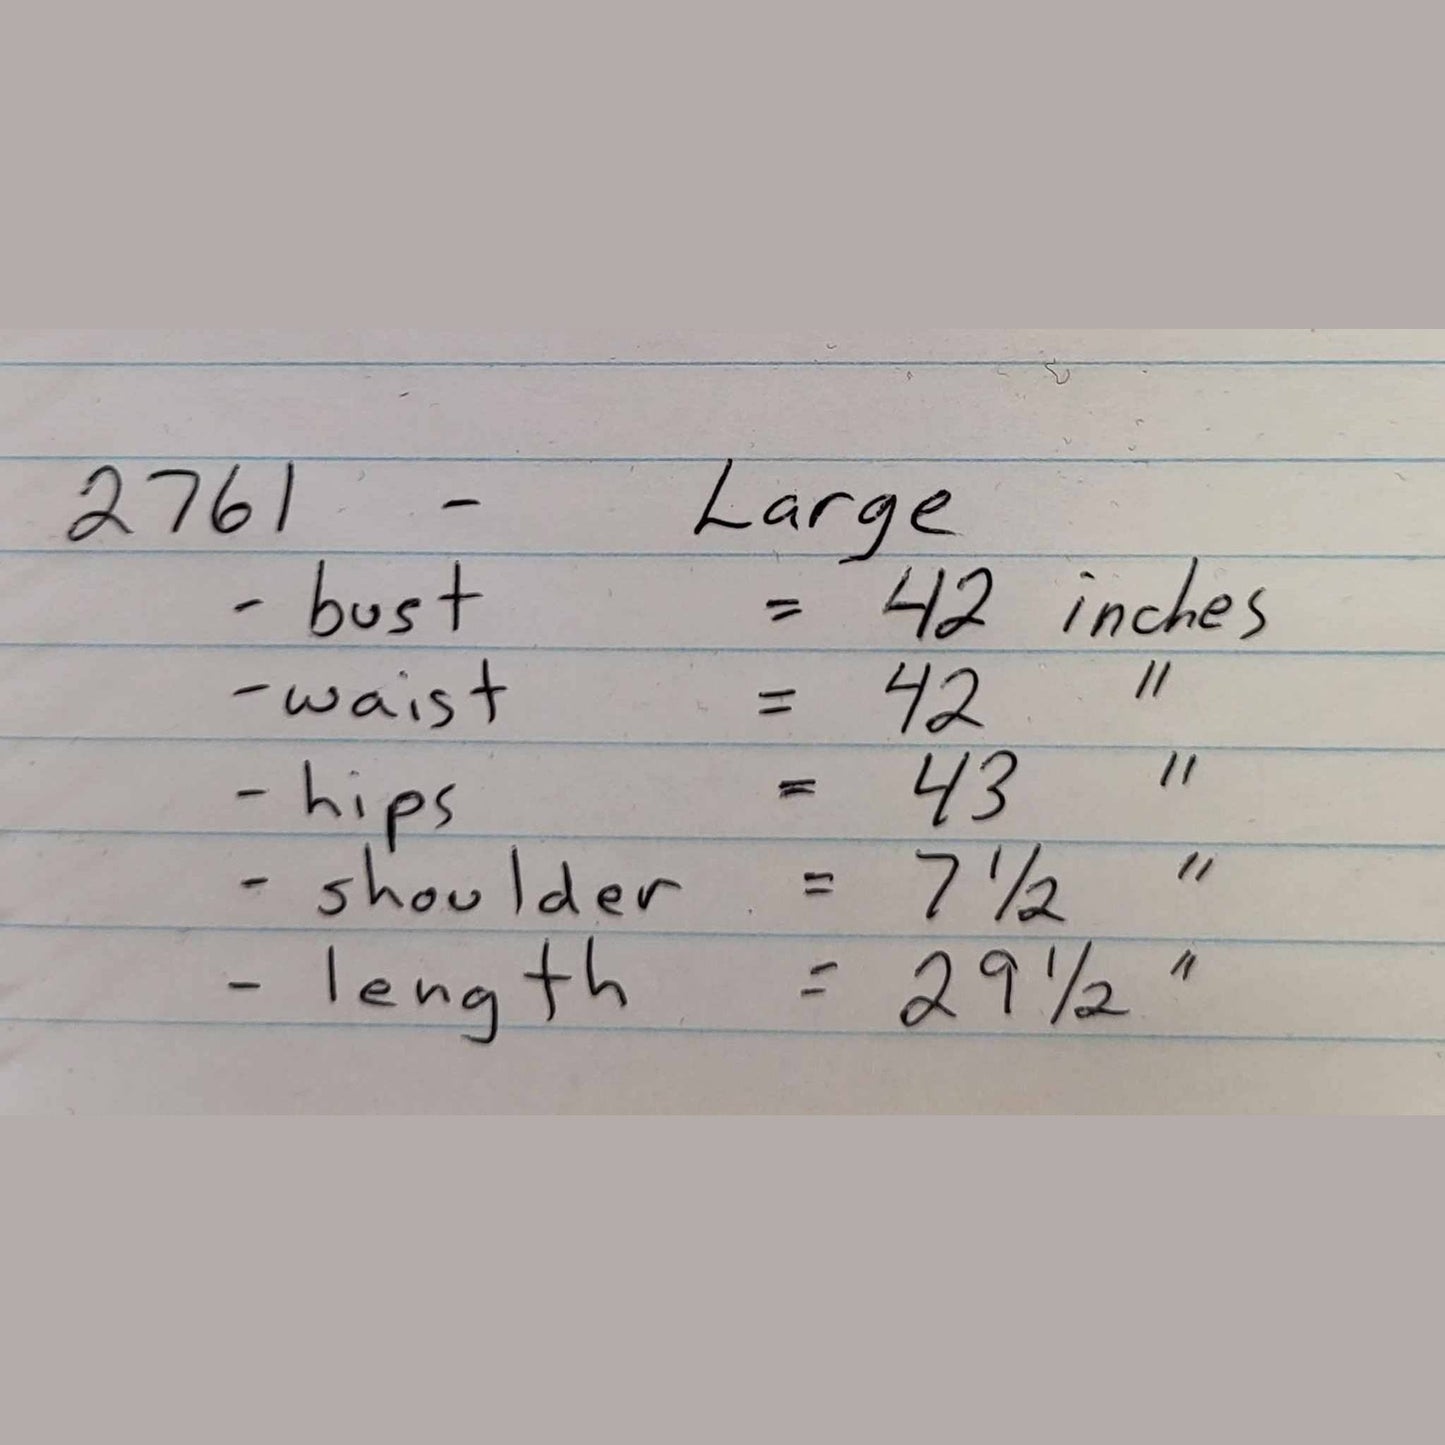 2761 - Large
- bust = 42 inches
- waist = 42 "
- hips = 43 "
- shoulder = 7 1/2 "
- length = 29 1/2 "